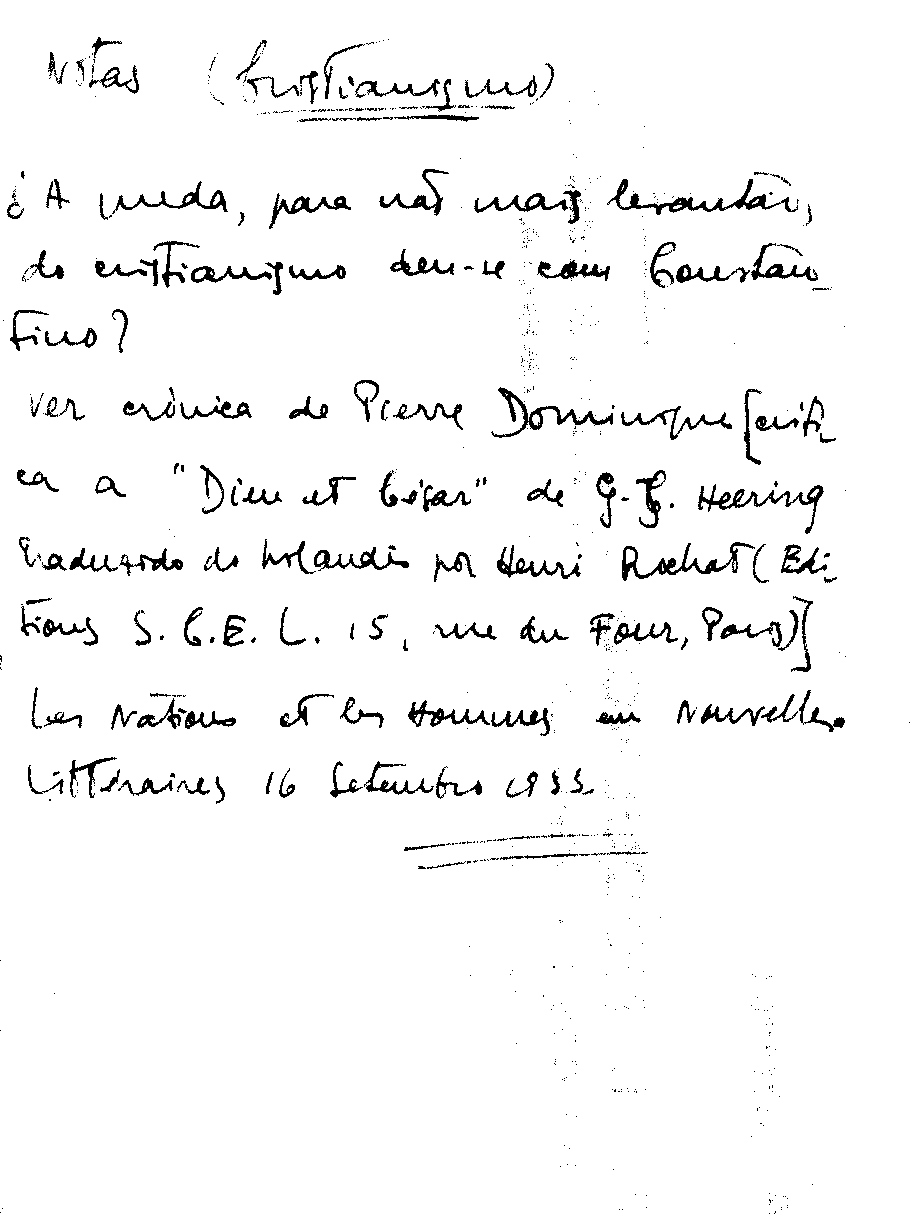 Notas (Cristianismo)
¿A queda, para não mais levantar,
do cristianismo deu-se com Constan-
tino?
Ver crónica de Pierre Dominique [críti-
ca a "Dieu et César" de G.-J. Heering
traduzido do holandês por Henri Rochat (Edi-
tions S. C. E. L. 15, rue du Four, Paris)]
Les Nations et les Hommes em Nouvelles
Littéraires 16 Setembro 1933.